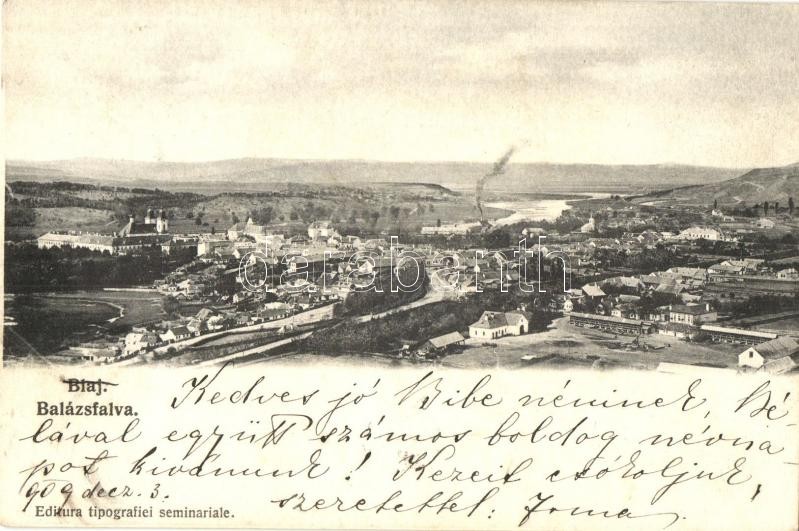 darabanth
Blaj.
Balázsfalva.
Kedves jó Bibe néninek, Bé-
lával együtt számos boldog névna-
pot kivánunk! Kezeit csókoljuk,
909 decz. 3. szeretettel: Irma.
Editura tipografiei seminariale.